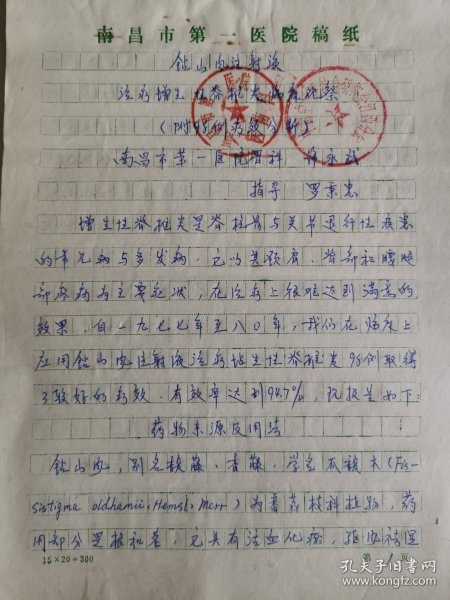 南昌市第一医院稿纸
钻山风注射液
治疗增生性脊椎炎临床观察
(附98例疗效分析)
南昌市第一医院骨科
指导 罗
增生性脊椎炎是脊柱骨与关节退行性疾患
的常见病与多发病。它以其颈肩、背部和腰腿
部疼痛为主要症状，在治疗上很难达到满意的
效果，自一九七七年至八〇年，我们在临床上
应用钻山风注射液治疗增生性脊椎炎98例取得
了较好的疗效，有效率达到94.7%，现报告如下：
药物来源及用法
钻山风，别名 香藤，学名瓜馥木(Fis-
sistigma oldhamii, Hemsl, Merr)为番荔枝科植物，药
用部分是根和茎，它具有活血化瘀，驱
15×20=300
第 1 页
孔夫子旧书网
www.kongfz.com